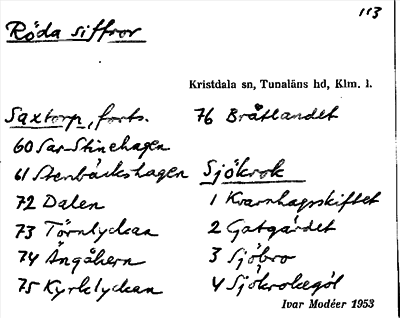 113
Röda siffror
Kristdala sn, Tunaläns hd, Klm. l.
Saxtorp, forts.
60 Sar-Stinehagen
61 Stenbäckshagen
72 Dalen
73 Törnlyckan
74 Ängåkern
75 Kyrklyckan
76 Bråtlandet
Sjökrok
1 Kvarnhagsskiftet
2 Gatgärdet
3 Sjöbro
4 Sjökroksgöl
Ivar Modéer 1953